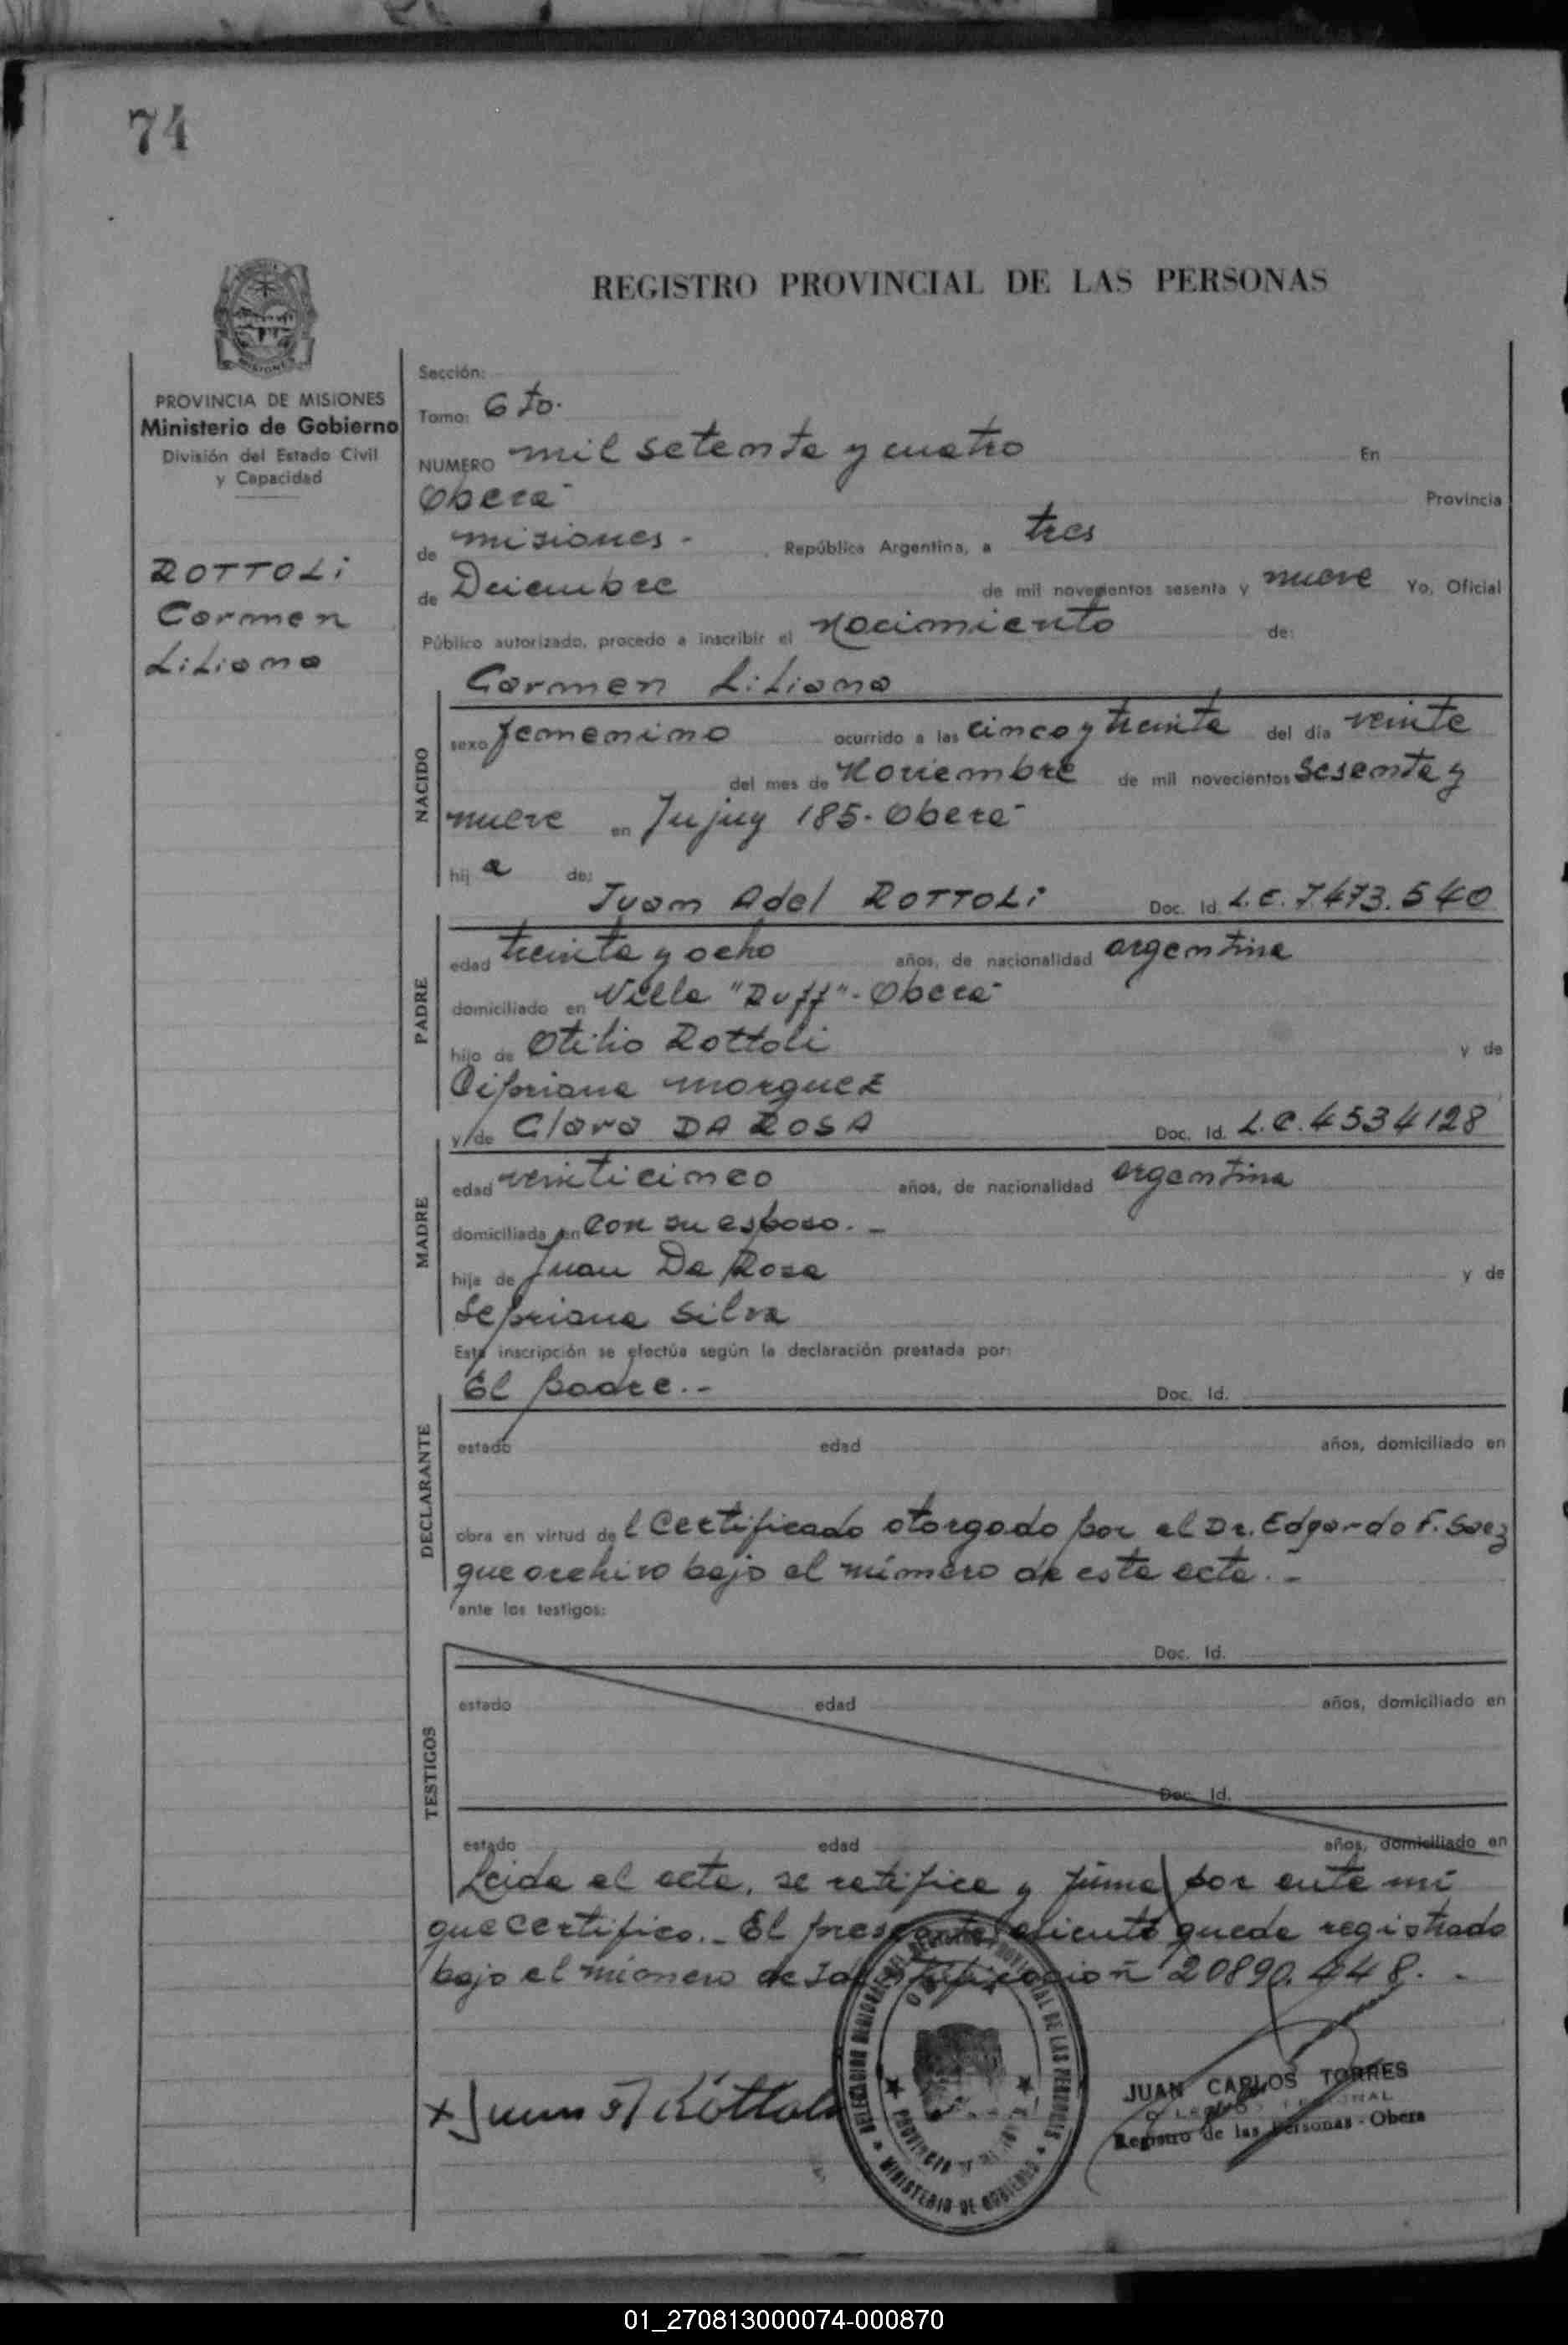 74
REGISTRO PROVINCIAL DE LAS PERSONAS
PROVINCIA DE MISIONES
Ministerio de Gobierno
División del Estado Civil
y Capacidad
ROTTOLi
Carmen
Liliana
Sección:
Tomo: 6to.
NUMERO mil setenta y cuatro En
Oberá
Provincia
de misiones - República Argentina, a tres
de Deciembre de mil novecientos sesenta y nueve Yo, Oficial
Público autorizado, procedo a inscribir el nacimiento de:
Carmen Liliana
NACIDO
sexo femenino ocurrido a las cinco y treinta del día veinte
del mes de Noviembre de mil novecientos sesenta y
nueve en Jujuy 185 - Oberá
hij a de:
Juan Adel ROTTOLi Doc. Id. L.E. 7.473.540
PADRE
edad treinta y ocho años, de nacionalidad argentina
domiciliado en Villa "Ruff" - Oberá
hijo de Otilio Rottoli y de
Cipriana Marquez
y de Clara DA ROSA Doc. Id. L.C. 4534128
MADRE
edad veinticinco años, de nacionalidad argentina
domiciliada en con su esposo. -
hija de Juan Da Rosa y de
Sepriana Silva
Esta inscripción se efectúa según la declaración prestada por:
El padre. - Doc. Id.
DECLARANTE
estado edad años, domiciliado en
obra en virtud de l Certificado otorgado por el Dr. Edgardo F. Saez
que archivo bajo el número de esta acta. -
ante los testigos:
Doc. Id.
TESTIGOS
estado edad años, domiciliado en
Doc. Id.
estado edad años, domiciliado en
Leida el acta, se ratifica y firma por ante mi
que certifico. - El presente asiento queda registrado
bajo el número de Identificación 20890.448. -
x Juan A Rottoli
DELEGACION REGIONAL DEL REGISTRO PROVINCIAL DE LAS PERSONAS
PROVINCIA DE MISIONES
MINISTERIO DE GOBIERNO
JUAN CARLOS TORRES
Registro de las Personas - Obera
01_270813000074-000870